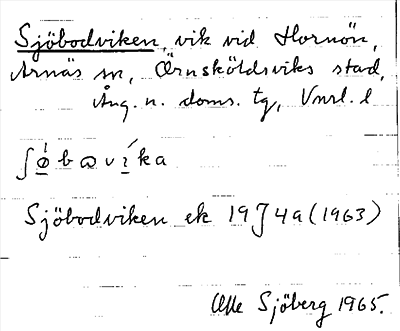 Sjöbodviken, vik vid Hornön,
Arnäs sn, Örnsköldsviks stad,
Ång. n. doms. tg, Vnrl. l
Sjöbodviken ek 19J4a (1963)
Olle Sjöberg 1965.